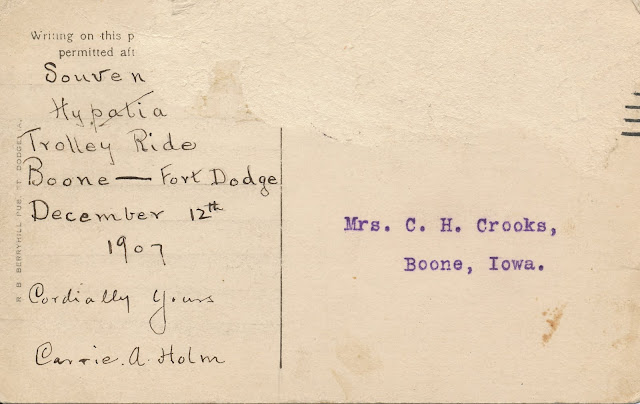 Writing on this p
permitted aft
Souven
Hypatia
Trolley Ride
Boone — Fort Dodge
December 12th
1907
Cordially Yours
Carrie. A. Holm
Mrs. C. H. Crooks,
Boone, Iowa.
R. B. BERRYHILL PUB. FT. DODGE, IA.